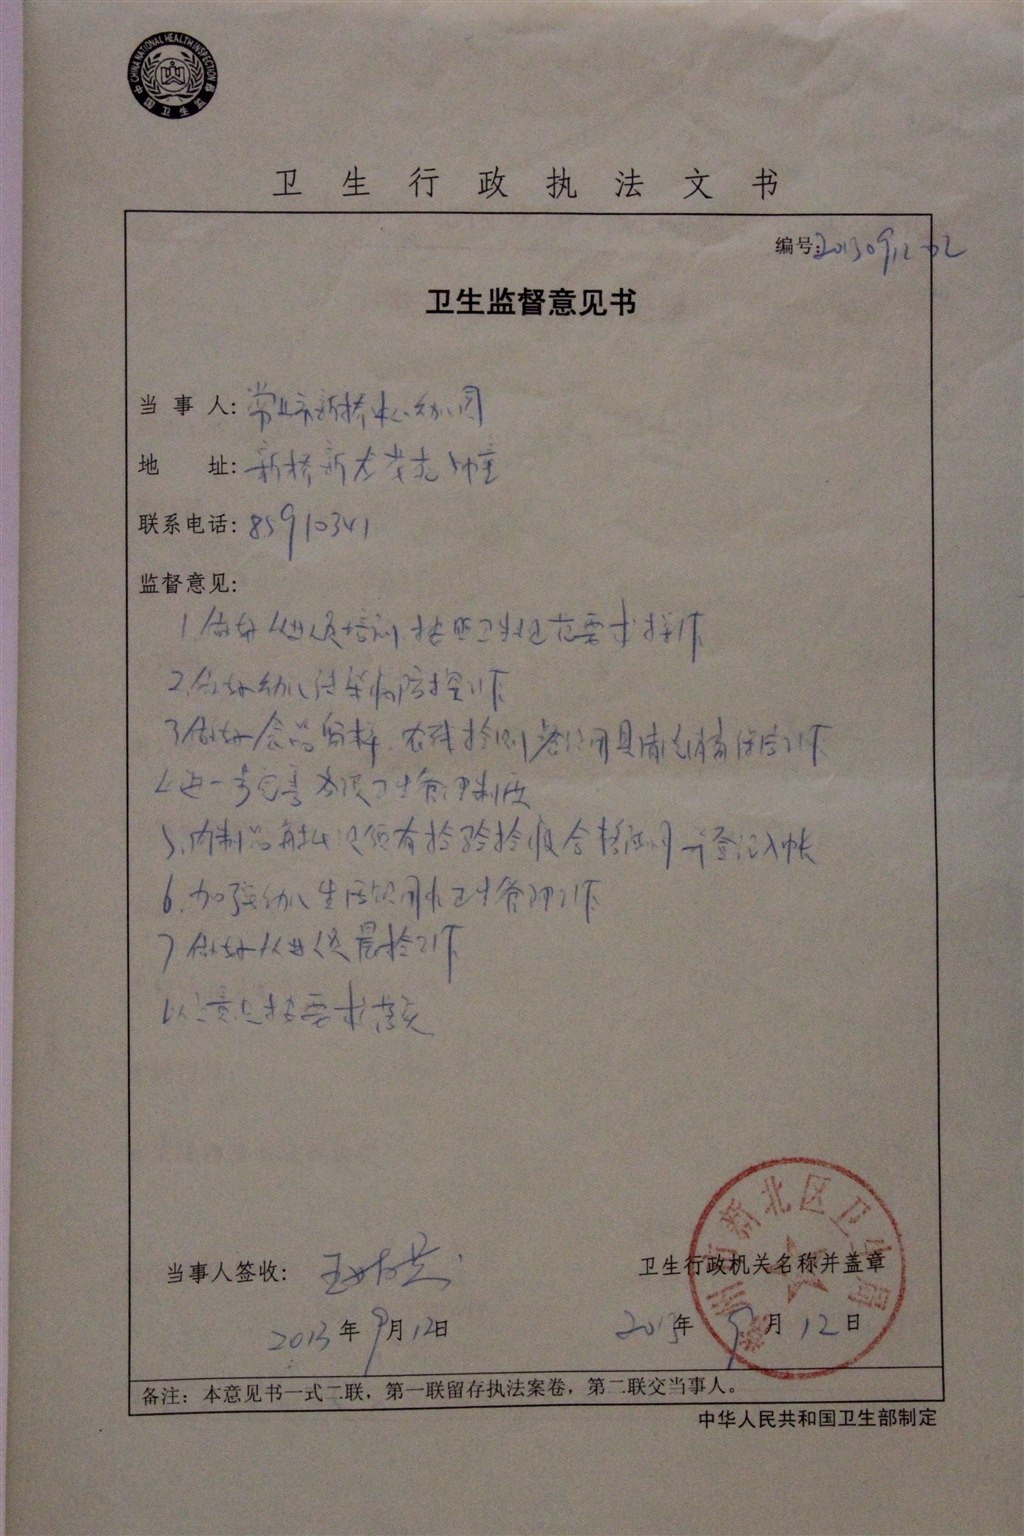 CHINA NATIONAL HEALTH INSPECTION
中国卫生监督
卫生行政执法文书
编号:20130912-02
卫生监督意见书
当事人:常州市新桥中心幼儿园
地址:新桥新
联系电话:85910341
监督意见:
1.做好从业人员培训,按照卫生规范要求操作
2.做好幼儿传染病防控工作
3.做好食品留样、农残检测、餐饮用具清洗消毒保洁工作
4.进一步完善各项卫生管理制度
5.肉制品 必须有检验 合格证明 并登记入帐
6.加强幼儿生活饮用水卫生管理工作
7.做好从业人员晨检工作
以上意见按要求落实
当事人签收:王
2013年9月12日
卫生行政机关名称并盖章
常州市新北区卫生局
2013年9月12日
备注:本意见书一式二联,第一联留存执法案卷,第二联交当事人。
中华人民共和国卫生部制定